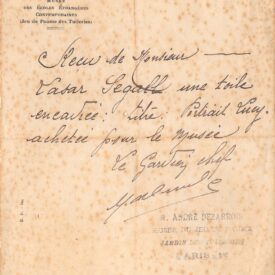 MUSÉE
DES ÉCOLES ÉTRANGÈRES
CONTEMPORAINES
(Jeu de Paume des Tuileries)
Reçu de Monsieur
Lasar Segall une toile
encadrée: titre Portrait Lucy
achetée pour le Musée
Le Gardien chef
M. ANDRÉ DEZARROIS
MUSÉE DU JEU DE PAUME
JARDIN DES TUILERIES
PARIS